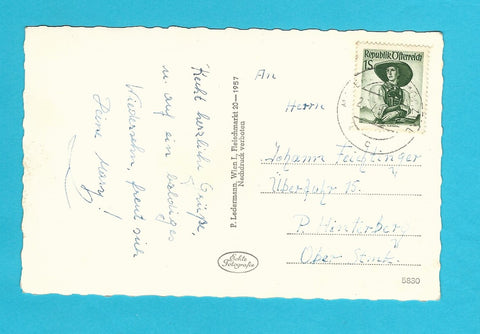 Recht herzliche Grüße,
u. auf ein baldiges
Wiedersehn, freut sich
Deine Mary!
P. Ledermann, Wien I., Fleischmarkt 20—1957
Nachdruck verboten
Echte
Fotografie
Republik Österreich
1S
An
Herrn
Johann Feichtinger
Überfuhr 15.
P. Hinterberg
Ober Stmk.
5830